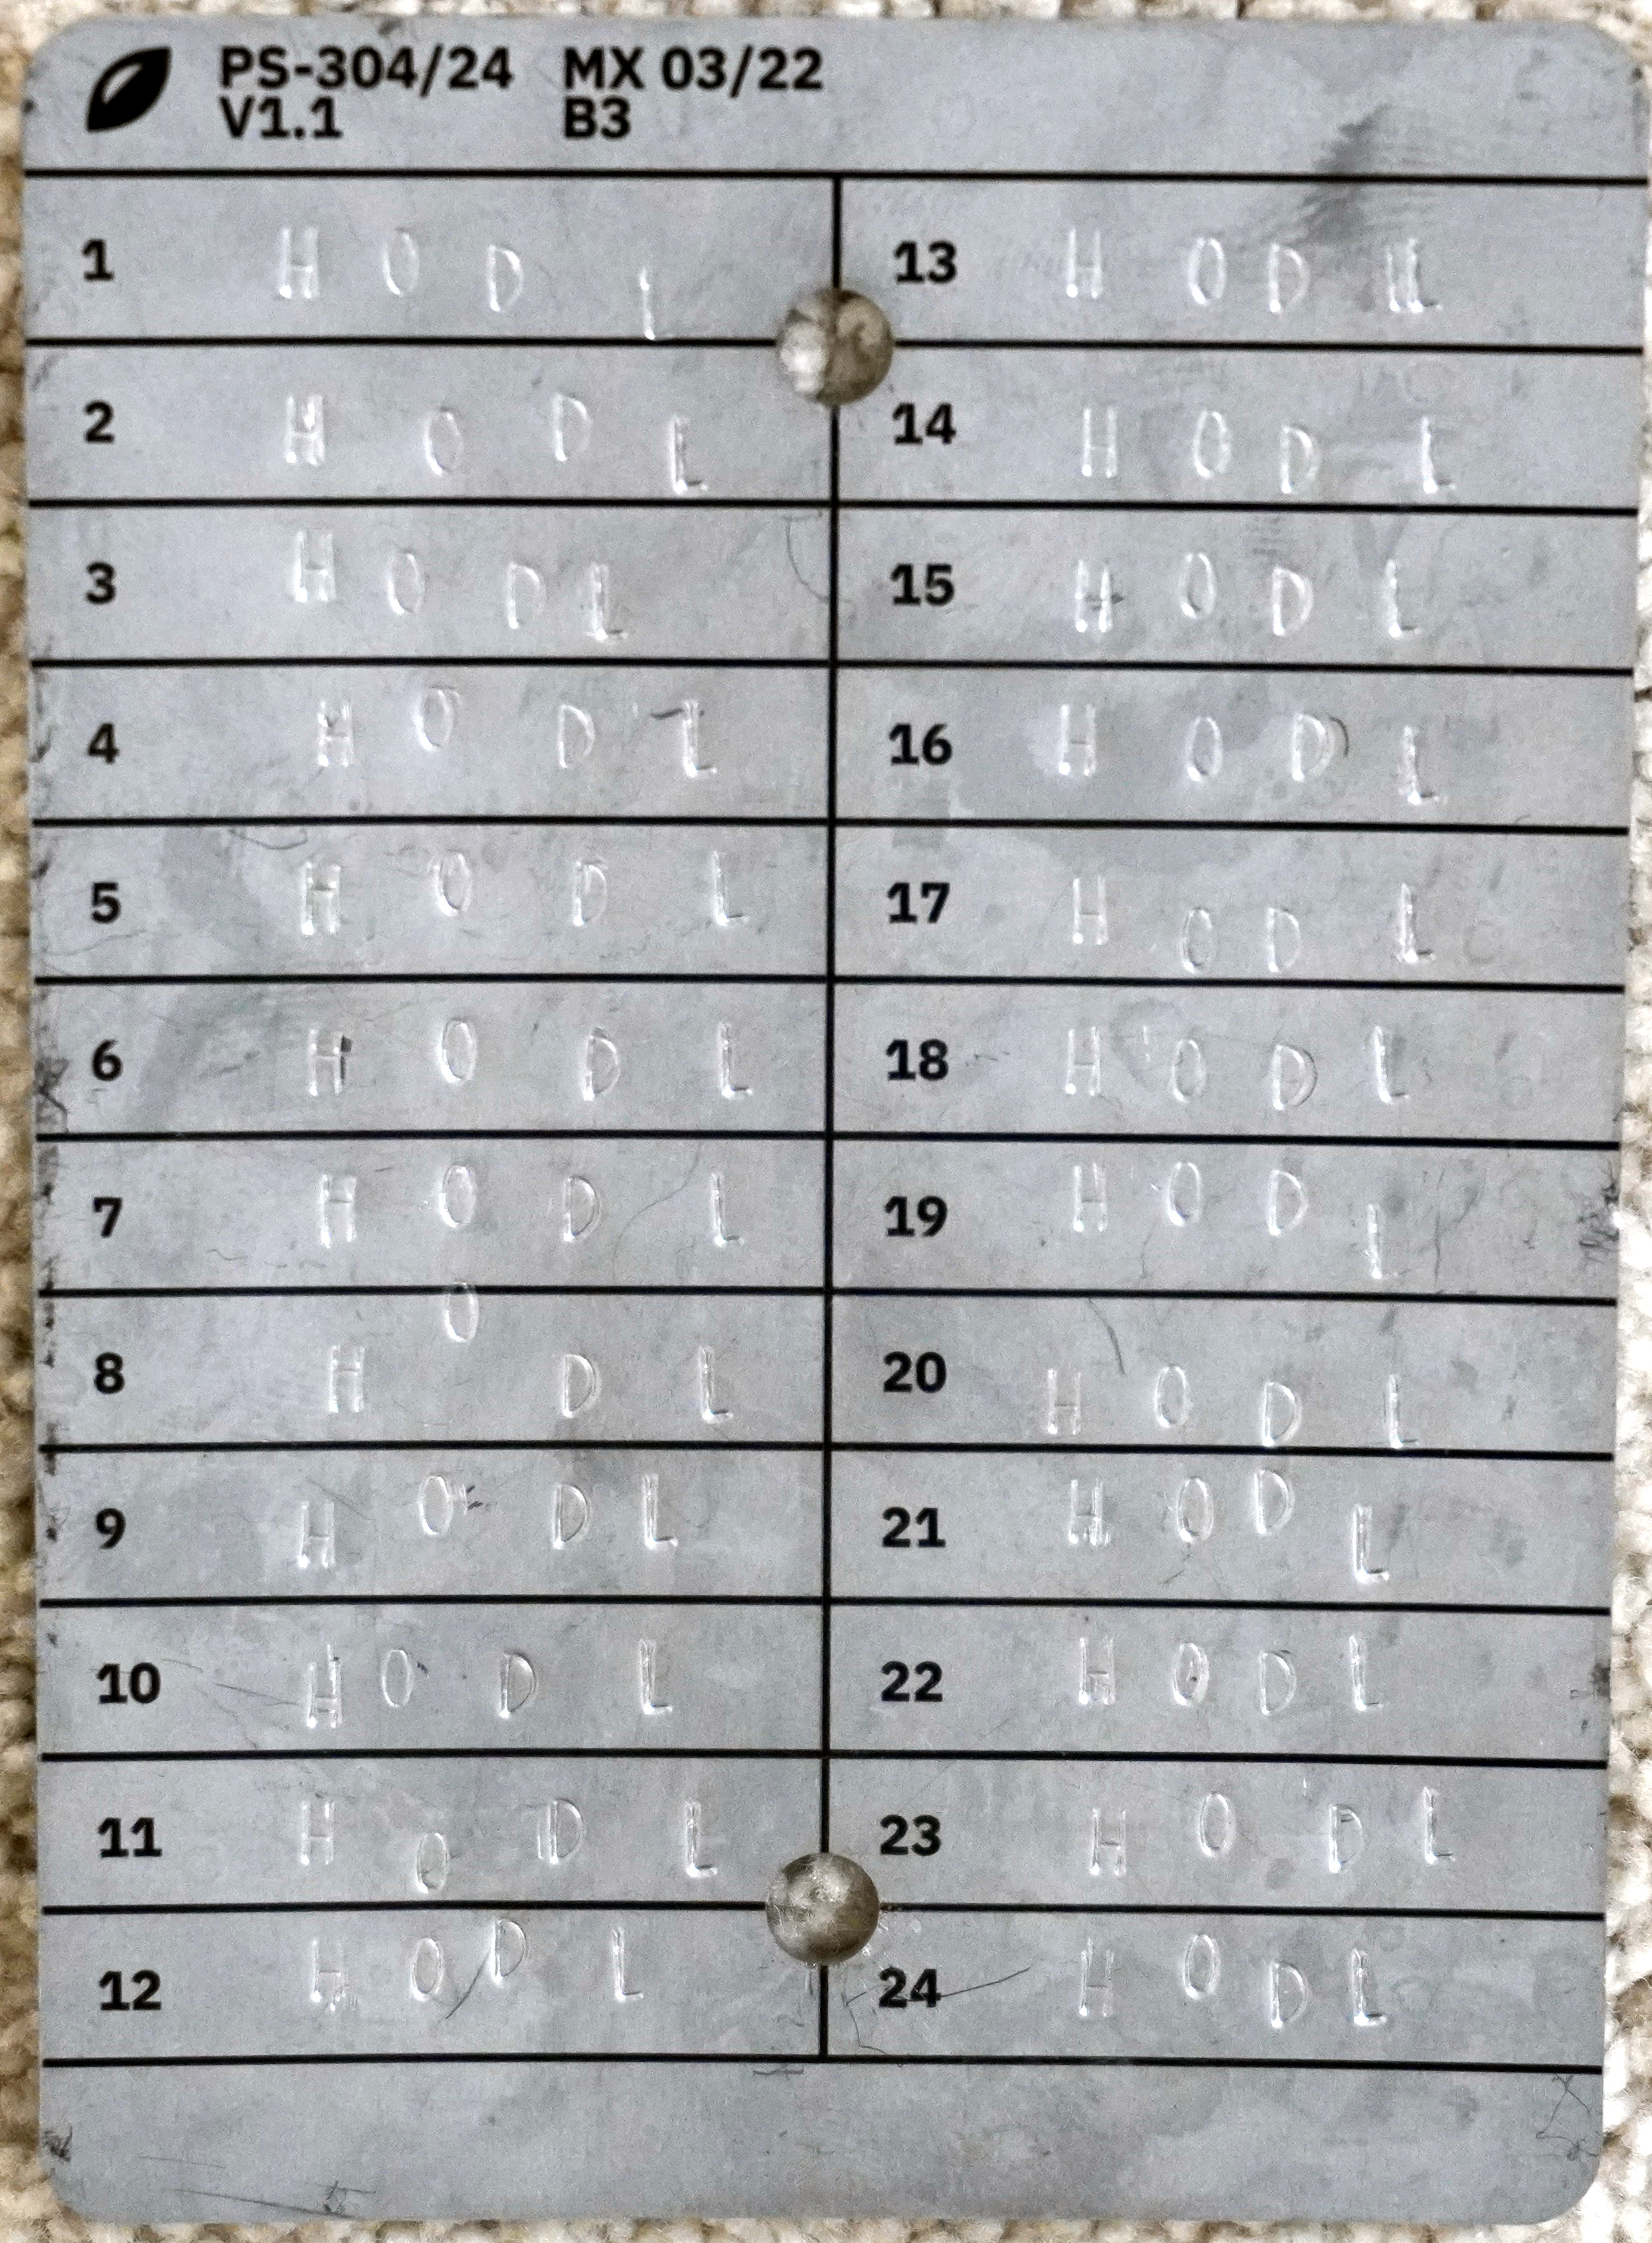 PS-304/24 MX 03/22
V1.1 B3
1 HODL
2 HODL
3 HODL
4 HODL
5 HODL
6 HODL
7 HODL
8 HODL
9 HODL
10 HODL
11 HODL
12 HODL
13 HODL
14 HODL
15 HODL
16 HODL
17 HODL
18 HODL
19 HODL
20 HODL
21 HODL
22 HODL
23 HODL
24 HODL